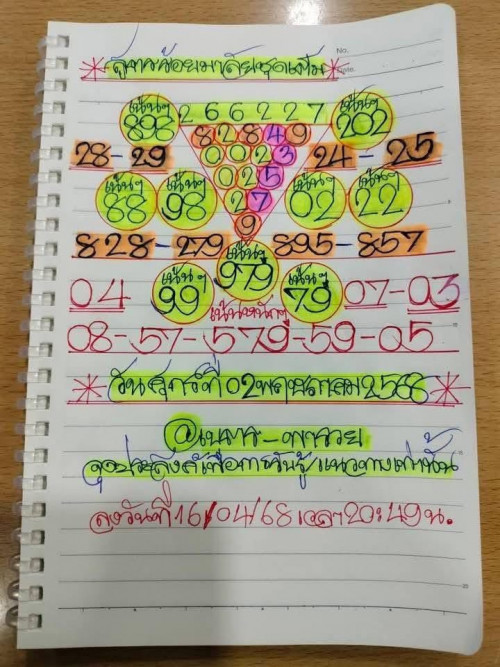 * สูตรร้อยมาลัยชุดเต็ม *
No.
Date.
เน้นๆ 898
2 6 6 2 2 7
เน้นๆ 202
8 2 8 4 9
28-29
0 0 2 3
24-25
0 2 5
เน้นๆ 88
เน้นๆ 98
2 7
เน้นๆ 02
เน้นๆ 22
9
828-279
895-857
เน้นๆ 979
04
เน้นๆ 99
เน้นๆ 79
07-03
เน้นหนักๆ
08-57-579-59-05
* วันศุกร์ที่ 02 พฤษภาคม 2568 *
จุดประสงค์เพื่อการรับรู้/แนวทางเท่านั้น
ลงวันที่ 16/04/68 เวลา 20:49 น.